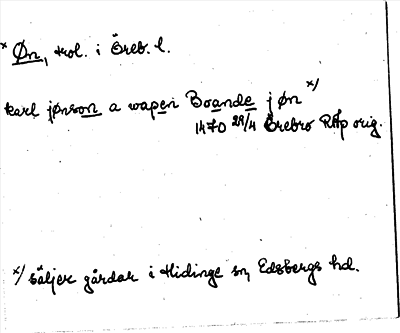 x Øn, trol. i Öreb. l.
karl jønson a wapen Boande j øn x/
1470 29/4 Örebro RAp orig.
x/ säljer gårdar i Hidinge sn, Edsbergs hd.